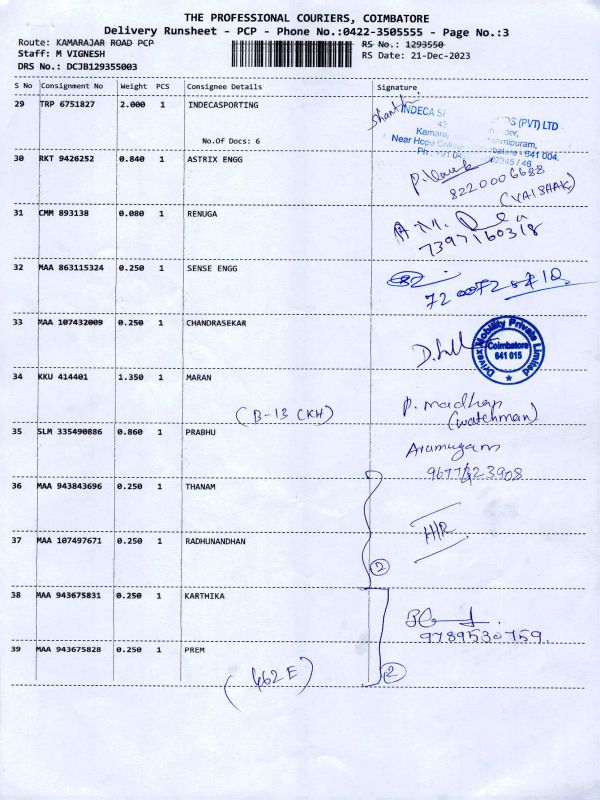 THE PROFESSIONAL COURIERS, COIMBATORE
Delivery Runsheet - PCP - Phone No.:0422-3505555 - Page No.:3
Route: KAMARAJAR ROAD PCP
Staff: M VIGNESH
DRS No.: DCJB129355003
RS No.: 1293550
RS Date: 21-Dec-2023
S No Consignment No Weight PCS Consignee Details Signature
29 TRP 6751827 2.000 1 INDECASPORTING
No.Of Docs: 6
INDECA (PVT) LTD
Near Hope
641 004.
30 RKT 9426252 0.840 1 ASTRIX ENGG
8220006688
(VAISHAK)
31 CMM 893138 0.080 1 RENUGA
7397160318
32 MAA 863115324 0.250 1 SENSE ENGG
33 MAA 107432009 0.250 1 CHANDRASEKAR
Drivex Mobility Private Limited
Coimbatore
641 015
34 KKU 414401 1.350 1 MARAN
(B-13 CKH)
P. Madhan
(watchman)
35 SLM 335490886 0.860 1 PRABHU
Arumugam
36 MAA 943843696 0.250 1 THANAM
H/R
37 MAA 107497671 0.250 1 RADHUNANDHAN
2
38 MAA 943675831 0.250 1 KARTHIKA
9789530759.
39 MAA 943675828 0.250 1 PREM
(462 E)
2